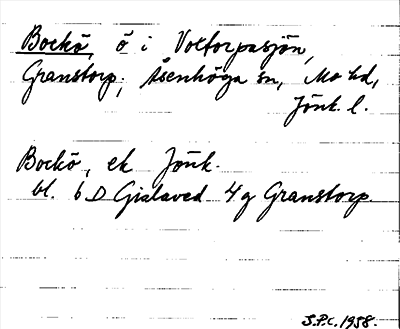 Bockö, ö i Voxtorpasjön,
Granstorp; Åsenhöga sn, Mo hd,
Jönk. l.
Bockö, ek Jönk.
bl. 6 D Gislaved 4g Granstorp.
S.P.C. 1958.